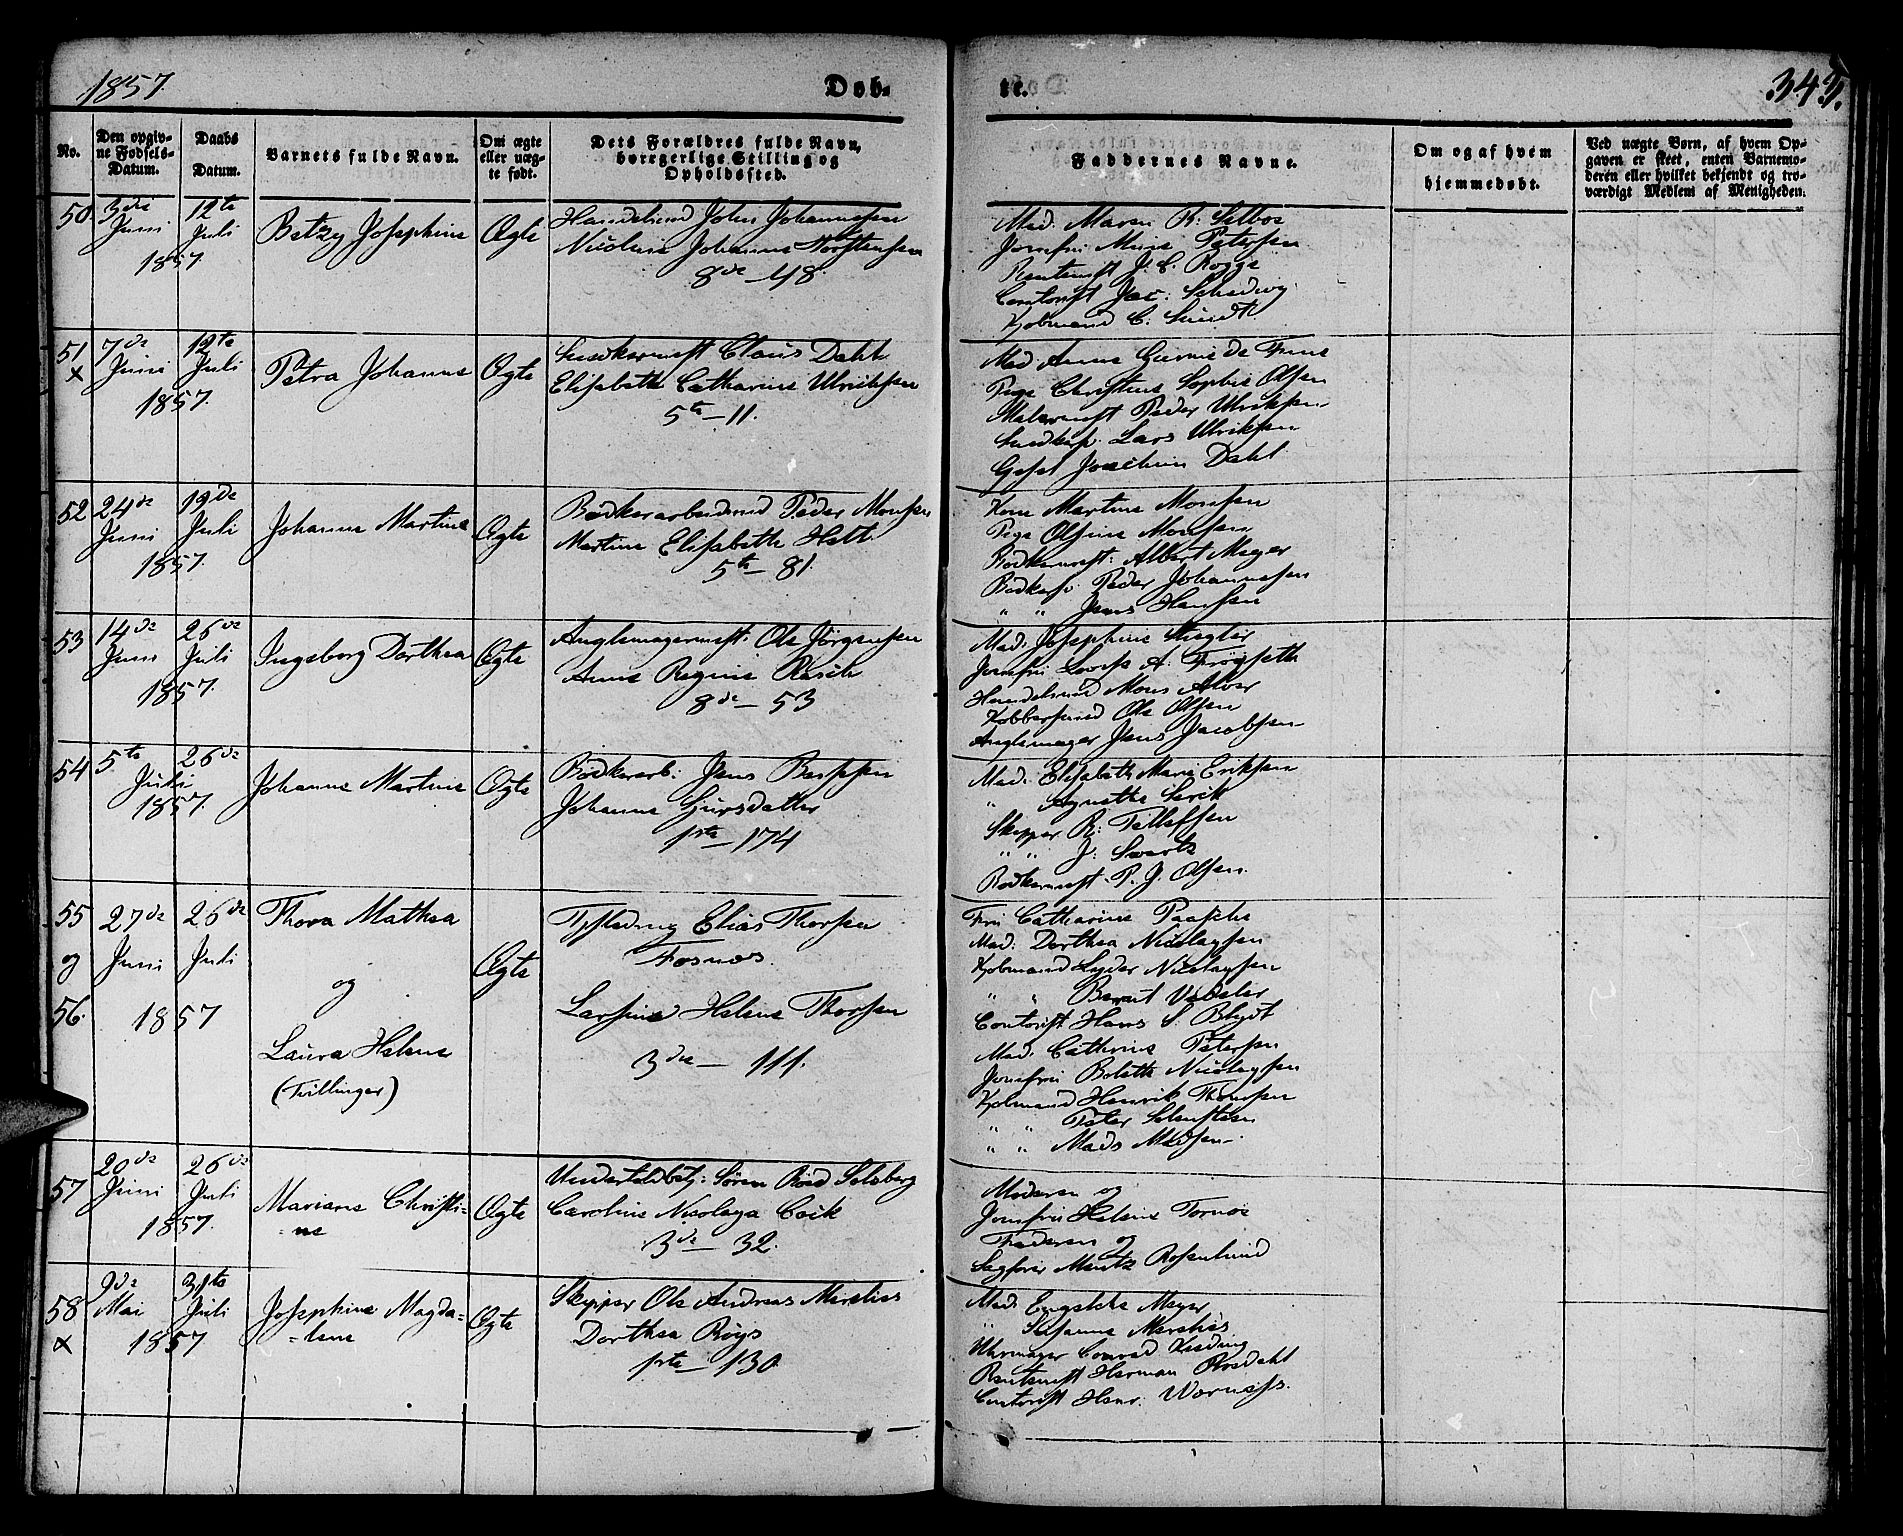 1857.
Døb-
te.
343.
No.
Den opgiv-
ne Fødsels-
Datum.
Daabs
Datum.
Barnets fulde Navn.
Om ægte
eller uæg-
te født.
Dets Forældres fulde Navn,
borgerlige Stilling og
Opholdssted.
Faddernes Navne.
Om og af hvem
hjemmedøbt.
Ved uægte Børn, af hvem Op-
gaven er skeet, enten Barnemo-
deren eller hvilket bekjendt og tro-
værdigt Medlem af Menigheden.
50
3die
Juni
12te
Juli
1857.
Betzy Josephine
Ægte
Handelsmd John Johannessen
Nicoline Johanne Torstensen
8de - 48
Mad. Maren R.
Jomfru Petersen
J. C. Rogge
Contorist Jac.
Kjøbmand C. Sundt
51
x
7de
Juni
12te
Juli
1857.
Petra Johanne
Ægte
Snedkermest Claus Dahl
Elisabeth Catharine Ulrichsen
5te - 11.
Mad. Anna de Fine
Pige Christine Sophie Olsen
Malermest Peder Ulriksen
Lars Ulriksen
Joachim Dahl
52
24de
Juni
19de
Juli
1857.
Johanne Martine
Ægte
Bødkerarbeidsmd Peder Monsen
Martine Elisabeth Hatt
5te - 81.
Kone Martine Monsen
Pige Olsine Monsen
Bødkermest. Albert Meyer
Bødkersv Peder Johannesen
" " Jens Hansen
53
14de
Juni
26de
Juli
1857.
Ingeborg Dorthea
Ægte
Anglemagermest. Ole Jørgensen
Anne Regine Rasch
8de - 53
Mad. Josephine
Jomfru A.
Handelsmd Mons Alver
Ole Olsen
Anglemager Jens Jacobsen
54
5te
Juli
26de
1857.
Johanne Martine
Ægte
Bødkerarb. Jens
Johanne
1ste - 174
Mad. Elisabeth Marie Eriksen
" Agnethe
Skipper R. Tellefsen
" " J. Swartz
Bødkermest. P. J. Olsen.
55
og
56.
27de
Juni
26de
Juli
1857
Thora Mathea
og
Laura Helene
(Tvillinger)
Ægte
Elias Thorsen
Fosnæs.
Larsine Helene Thorsen
3die - 111.
Fru Catharine Paasche
Mad. Dorthea Nicolaysen
Kjøbmand Lyder Nicolaysen
" " Berent Vedeler
Contorist Hans S. Blydt
Mad. Cathrine Petersen
Jomfru Bolette Nicolaysen
Kjøbmand Henrik Thomsen
" " Peter
" " Mads Madsen.
57
20de
Juni
26de
Juli
1857.
Mariane Christi-
-ne
Ægte
Undertoldbetj: Søren Solberg
Caroline Nicolaya Cock
3die - 32.
Moderen og
Jomfru Helene Tornøe
Faderen og
Sagfører Rosenlund
58
x
9de
Mai
31te
Juli
1857
Josephine Magda-
-lene
Ægte
Skipper Ole Andreas
Dorthea Røys
1ste - 130
Mad. Engelche Meyer
" Susanne
Uhrmager Conrad
Herman Rosdahl
Contorist